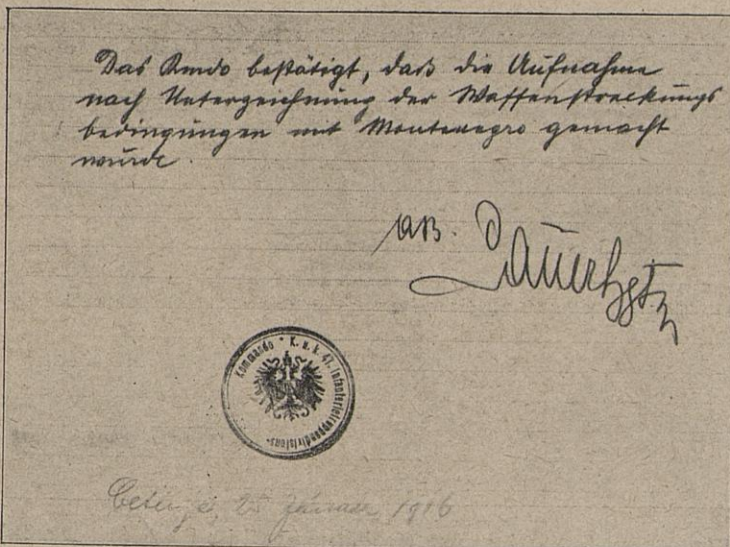 Das Kmdo bestätigt, daß die Aufnahme
nach Unterzeichnung der Waffenstreckungs
bedingungen mit Montenegro gemacht
wurde.
K. u. k. 47. Infanterietruppendivisions-
Kommando
Cetinje, 25 Januar 1916